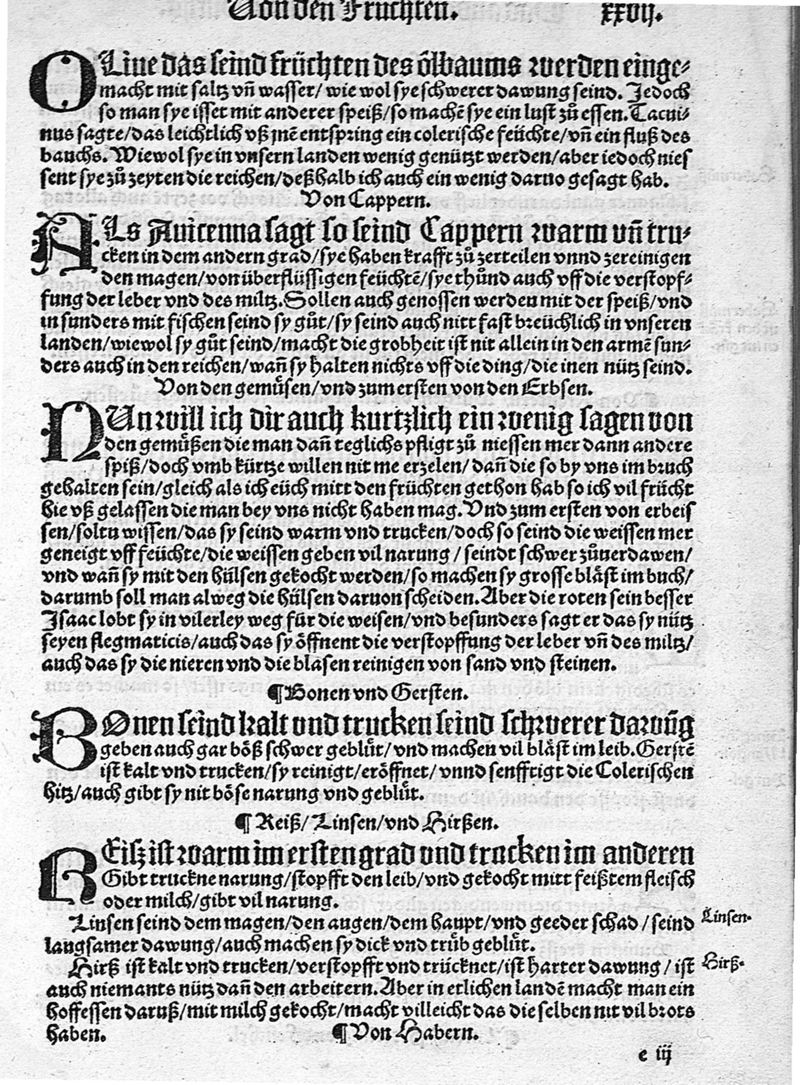 Von den Früchten. xxvij.
OLiue das seind früchten des ölbaums werden einge-
macht mit saltz vñ wasser/ wie wol sye schwerer dawung seind. Jedoch
so man sye isset mit anderer speiß/so machẽ sye ein lust zů essen. Tacui-
nus sagte/das leichtlich vß jnẽ entspring ein colerische feüchte/vñ ein fluß des
bauchs. Wiewol sye in vnsern landen wenig genützt werden/aber iedoch nies
sent sye zů zeyten die reichen/deßhalb ich auch ein wenig daruo gesagt hab.
Von Cappern.
ALs Auicenna sagt so seind Cappern warm vñ tru-
cken in dem andern grad/sye haben krafft zů zerteilen vnnd zereinigen
den magen/von überflüssigen feüchtẽ/sye thůnd auch vff die verstopf-
fung der leber vnd des miltz. Sollen auch genossen werden mit der speiß/vnd
in sunders mit fischen seind sy gůt/sy seind auch nitt fast breüchlich in vnseren
landen/wiewol sy gůt seind/macht die grobheit ist nit allein in den armẽ sun-
ders auch in den reichen/wañ sy halten nichts vff die ding/die inen nütz seind.
Von den gemüsen/vnd zum ersten von den Erbsen.
NUn will ich dir auch kurtzlich ein wenig sagen von
den gemüßen die man dañ teglichs pfligt zů niessen mer dann andere
spiß/doch vmb kürtze willen nit me erzelen/dañ die so by vns im bruch
gehalten sein/gleich als ich eüch mitt den früchten gethon hab so ich vil frücht
hie vß gelassen die man bey vns nicht haben mag. Vnd zum ersten von erbeis
sen/soltu wissen/das sy seind warm vnd trucken/doch so seind die weissen mer
geneigt vff feüchte/die weissen geben vil narung / seindt schwer zůuerdawen/
vnd wañ sy mit den hülsen gekocht werden/so machen sy grosse bläst im buch/
darumb soll man alweg die hülsen daruon scheiden. Aber die roten sein besser
Isaac lobt sy in vilerley weg für die weisen/vnd besunders sagt er das sy nütz
seyen flegmaticis/auch das sy öffnent die verstopffung der leber vñ des miltz/
auch das sy die nieren vnd die blasen reinigen von sand vnd steinen.
¶Bonen vnd Gersten.
BOnen seind kalt vnd trucken seind schwerer dawũg
geben auch gar böß schwer geblüt/vnd machen vil bläst im leib. Gerstẽ
ist kalt vnd trucken/sy reinigt/eröffnet/ vnnd senfftigt die Colerischen
hitz/auch gibt sy nit böse narung vnd geblüt.
¶ Reiß/Linsen/vnd Hirßen.
REisz ist warm im ersten grad vnd trucken im anderen
Gibt truckne narung/stopfft den leib/vnd gekocht mitt feißtem fleisch
oder milch/gibt vil narung.
Linsen seind dem magen/den augen/dem haupt/vnd geeder schad / seind Linsen-
langsamer dawung/auch machen sy dick vnd trüb geblüt.
Hirß ist kalt vnd trucken/verstopfft vnd trücknet/ist harter dawung / ist Hirß-
auch niemants nütz dañ den arbeitern. Aber in etlichen landẽ macht man ein
hoffessen daruß/mit milch gekocht/macht villeicht das die selben nit vil brots
haben. ¶Von Habern.
e iij